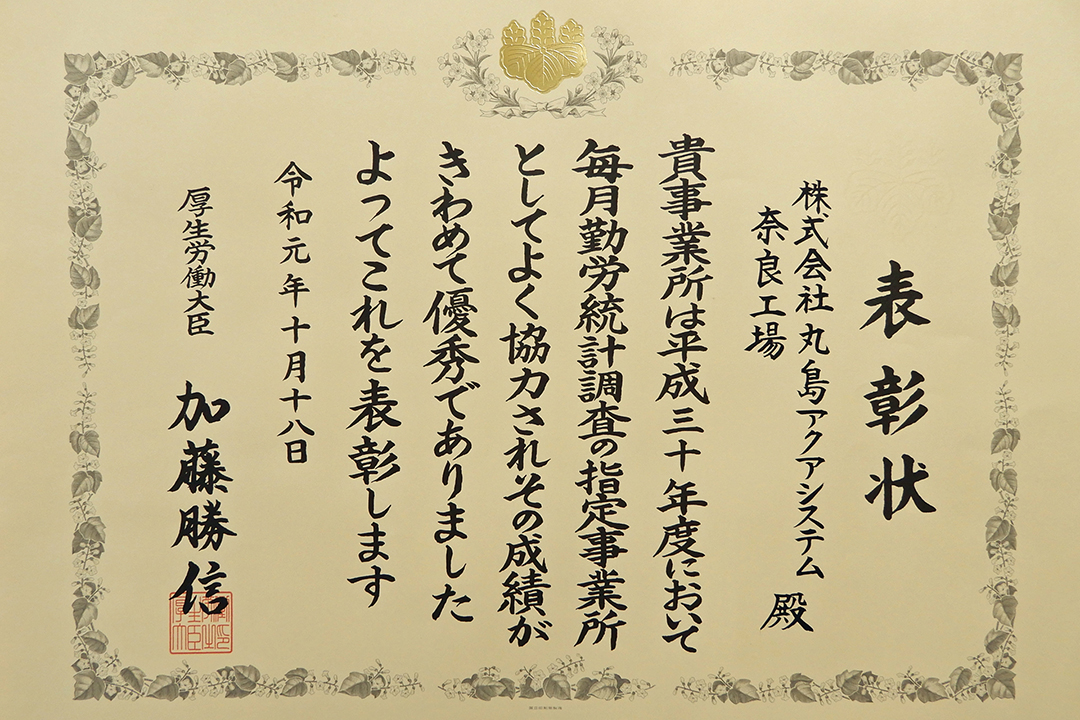 表彰状
株式会社丸島アクアシステム
奈良工場
殿
貴事業所は平成三十年度において
毎月勤労統計調査の指定事業所
としてよく協力されその成績が
きわめて優秀でありました
よってこれを表彰します
令和元年十月十八日
厚生労働大臣
加藤勝信